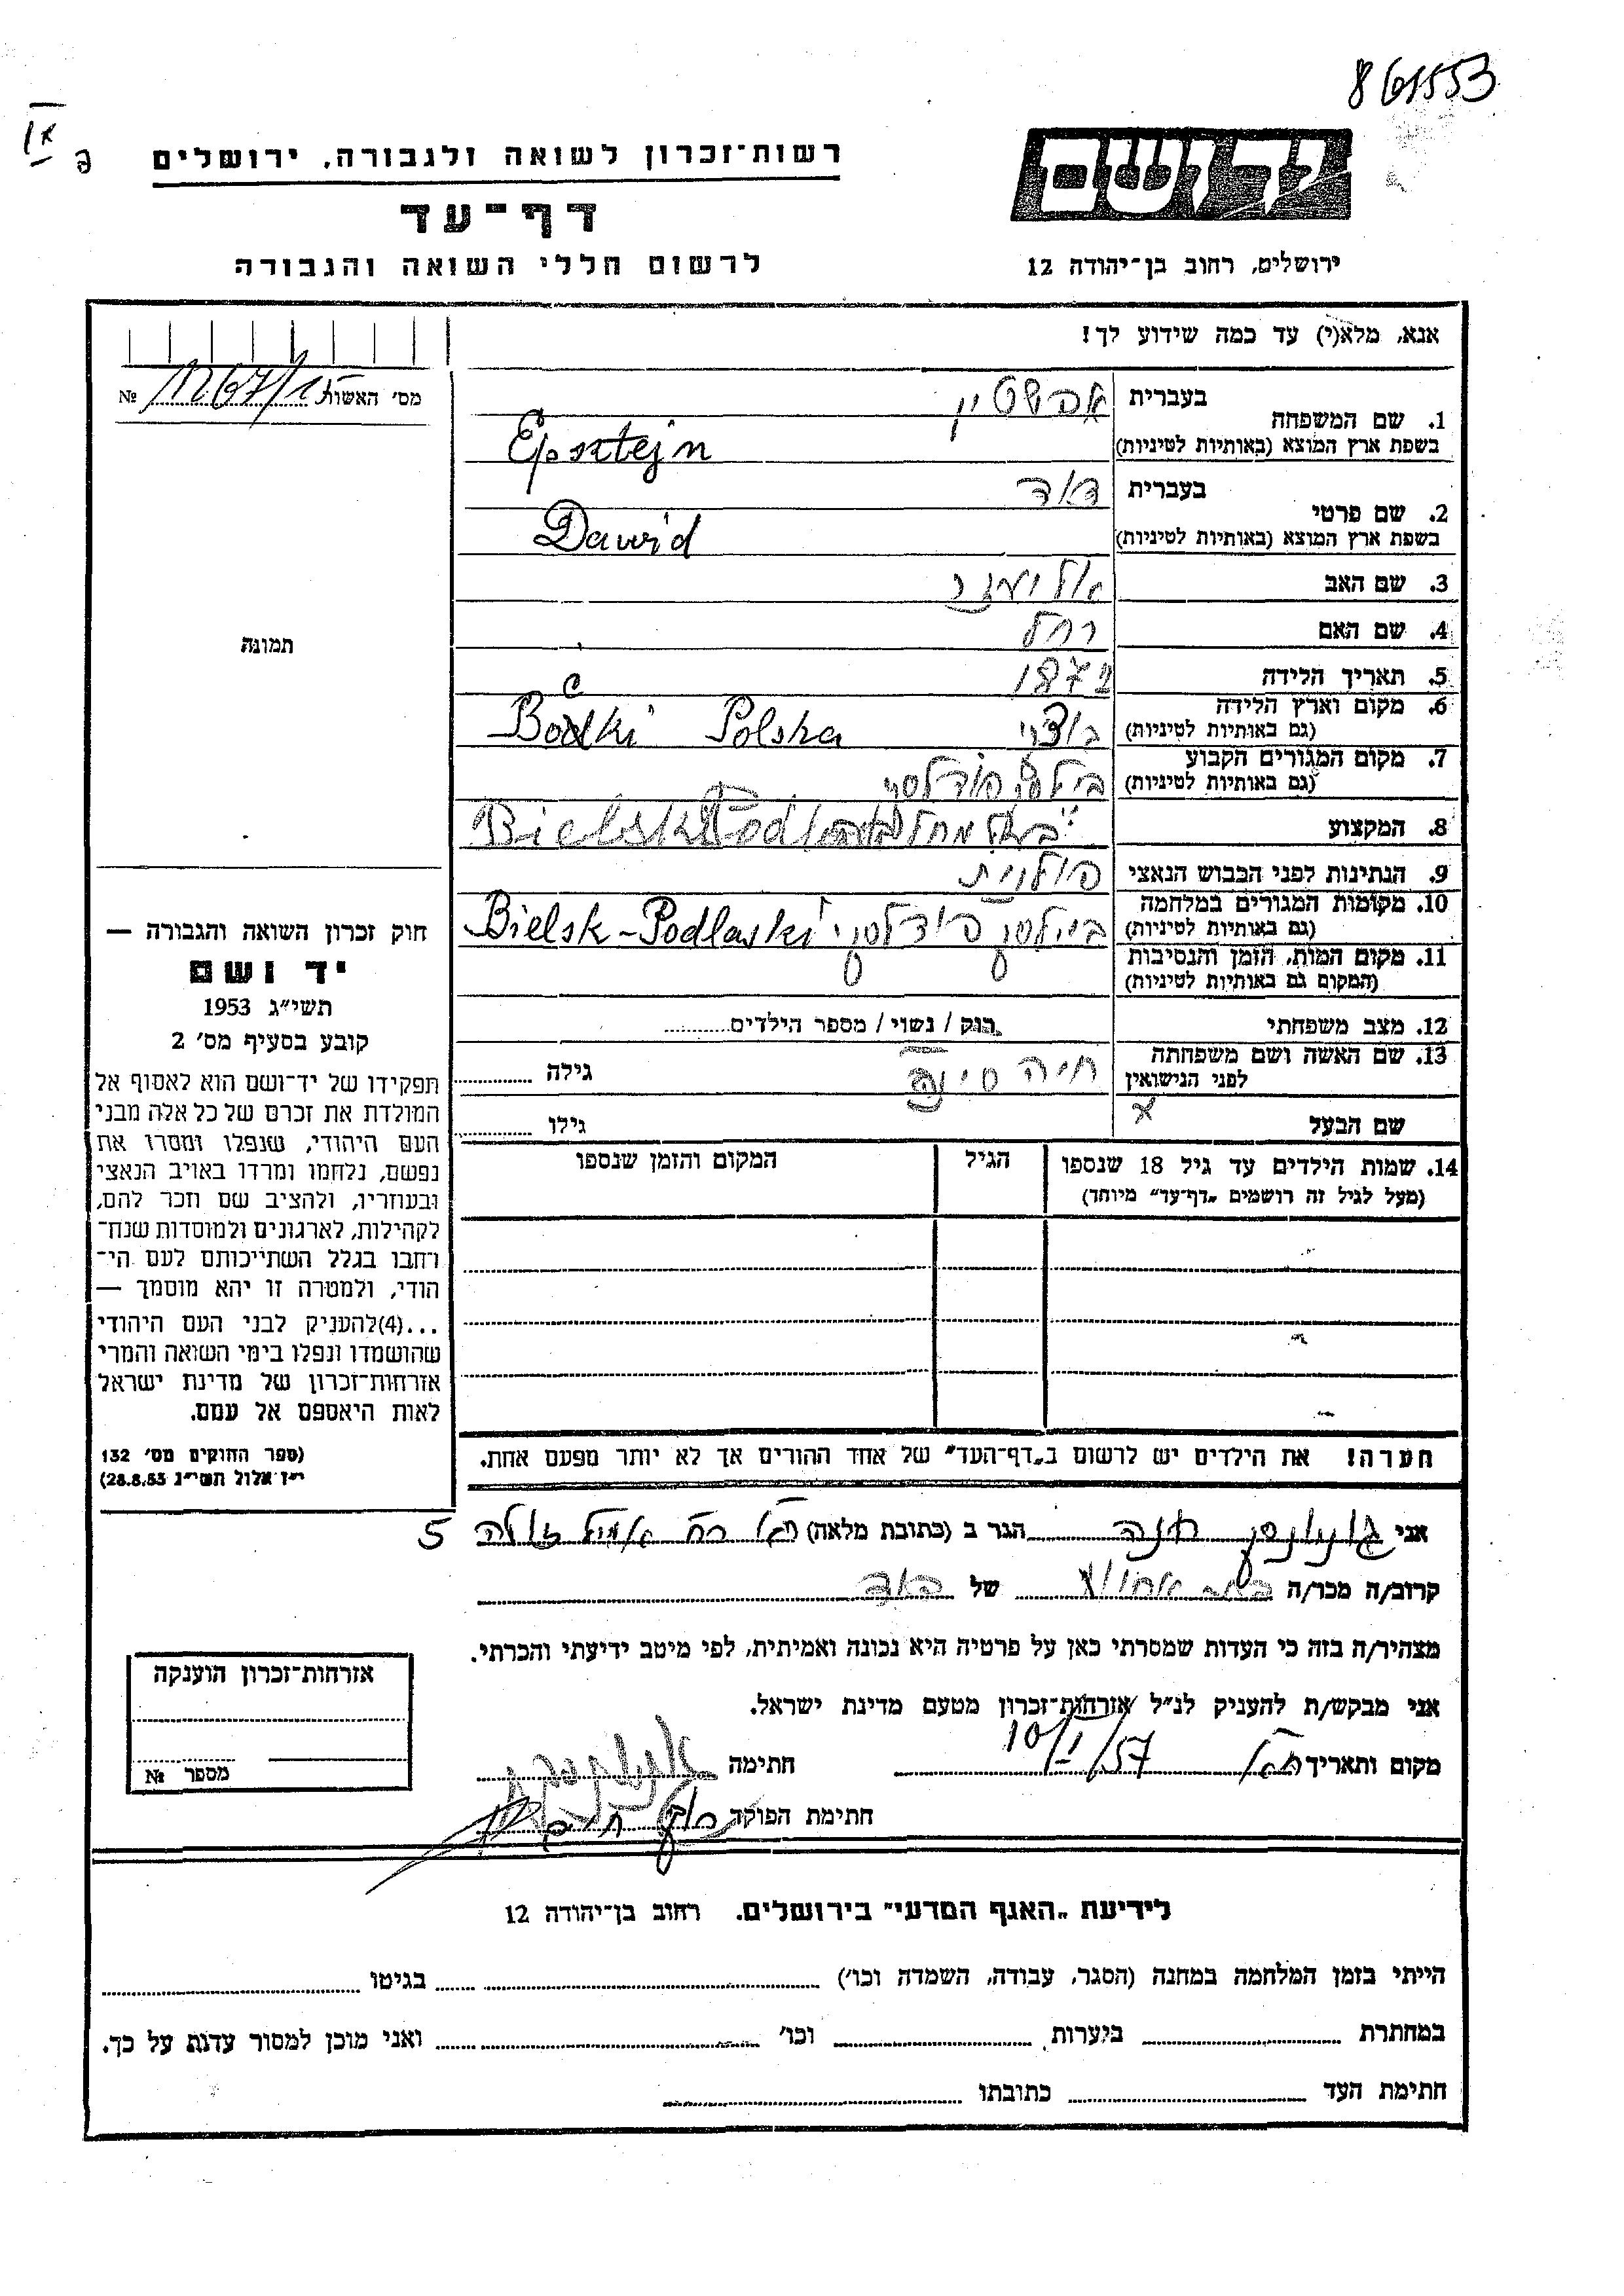 861553
רשות־זכרון לשואה ולגבורה, ירושלים
דף־עד
לרשום חללי השואה והגבורה
יד ושם
ירושלים, רחוב בן־יהודה 12
אנא, מלא(י) עד כמה שידוע לך!
מס׳ האשות № 11267/15
תמונה
1. שם המשפחה בעברית אפשטין
בשפת ארץ המוצא (באותיות לטיניות) Epsztejn
2. שם פרטי בעברית דוד
בשפת ארץ המוצא (באותיות לטיניות) Dawid
3. שם האב
4. שם האם רחל
5. תאריך הלידה 1872
6. מקום וארץ הלידה
(גם באותיות לטיניות) Boćki Polska
7. מקום המגורים הקבוע
(גם באותיות לטיניות) בילסק פודלסקי
8. המקצוע
9. הנתינות לפני הכבוש הנאצי פולנית
10. מקומות המגורים במלחמה
(גם באותיות לטיניות) בילסק פודלסקי Bielsk-Podlaski
11. מקום המות, הזמן והנסיבות
(המקום גם באותיות לטיניות)
12. מצב משפחתי רוק / נשוי / מספר הילדים
13. שם האשה ושם משפחתה
לפני הנישואין חיה גילה
שם הבעל גילו
14. שמות הילדים עד גיל 18 שנספו הגיל המקום והזמן שנספו
(מעל לגיל זה רושמים „דף־עד” מיוחד)
הערה! את הילדים יש לרשום ב„דף־העד” של אחד ההורים אך לא יותר מפעם אחת.
חוק זכרון השואה והגבורה —
יד ושם
תשי״ג 1953
קובע בסעיף מס׳ 2
תפקידו של יד־ושם הוא לאסוף אל
המולדת את זכרם של כל אלה מבני
העם היהודי, שנפלו ומסרו את
נפשם, נלחמו ומרדו באויב הנאצי
ובעוזריו, ולהציב שם וזכר להם,
לקהילות, לארגונים ולמוסדות שנח־
רחבו בגלל השתייכותם לעם הי־
הודי, ולמטרה זו יהא מוסמך —
...(4)להעניק לבני העם היהודי
שהושמדו ונפלו בימי השואה והמרי
אזרחות־זכרון של מדינת ישראל
לאות היאספם אל עמם.
(ספר החוקים מס׳ 132
י״ז אלול תשי״ג 28.8.53)
אני חנה הגר ב (כתובת מלאה) ת״א רח אמיל זולה 5
קרוב/ה מכר/ה של
מצהיר/ה בזה כי העדות שמסרתי כאן על פרטיה היא נכונה ואמיתית, לפי מיטב ידיעתי והכרתי.
אני מבקש/ת להעניק לנ״ל אזרחות־זכרון מטעם מדינת ישראל.
מקום ותאריך ת״א 10/I/57 חתימה
חתימת הפוקד
אזרחות־זכרון הוענקה
מספר №
לידיעת „האגף המדעי” בירושלים. רחוב בן־יהודה 12
הייתי בזמן המלחמה במחנה (הסגר, עבודה, השמדה וכו׳) בגיטו
במחתרת ביערות וכו׳ ואני מוכן למסור עדות על כך.
חתימת העד כתובתו